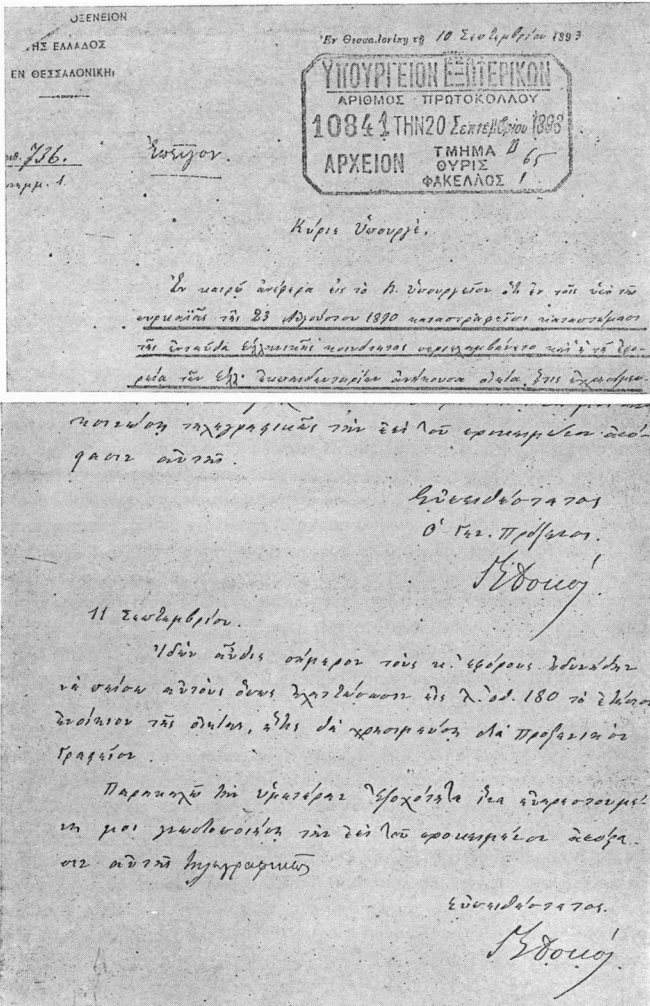 ΟΞΕΝΕΙΟΝ
ΗΣ ΕΛΛΑΔΟΣ
ΕΝ ΘΕΣΣΑΛΟΝΙΚΗ
Ἐν Θεσσαλονίκῃ τῇ 10 Σεπτεμβρίου 1893
ΥΠΟΥΡΓΕΙΟΝ ΕΞΩΤΕΡΙΚΩΝ
ΑΡΙΘΜΟΣ ΠΡΩΤΟΚΟΛΛΟΥ
10841 ΤΗΝ 20 Σεπτεμβρίου 1893
ΑΡΧΕΙΟΝ ΤΜΗΜΑ Β
ΘΥΡΙΣ 65
ΦΑΚΕΛΛΟΣ 1
736.
1.
Ἐπεῖγον.
Κύριε Ὑπουργέ,
Ἐν καιρῷ ἀνέφερα εἰς τὸ Β. Ὑπουργεῖον ὅτι ἐν τοῖς ὑπὸ τῆς
πυρκαϊᾶς τῆς 23 Αὐγούστου 1890 καταστραφεῖσι καταστήμασι
τῆς ἐνταῦθα ἑλληνικῆς κοινότητος περιελαμβάνετο καὶ ἡ τῇ ἐφο-
ρείᾳ τῶν ἑλλ. ἐκπαιδευτηρίων ἀνήκουσα οἰκία, ἥτις ἐχρησίμευ-
τηλεγραφικῶς τὴν ἐπὶ τοῦ προκειμένου ἀπό-
φασιν αὐτῆς.
Εὐπειθέστατος
Ὁ Γεν. Πρόξενος
Γ Δοκός
11 Σεπτεμβρίου.
Ἰδὼν αὖθις σήμερον τοὺς κ. ἐφόρους ἠδυνήθην
νὰ πείσω αὐτοὺς ὅπως ἐλαττώσωσιν εἰς λ. ὀθ. 180 τὸ ἐτήσιον
ἐνοίκιον τῆς οἰκίας, ἥτις θὰ χρησιμεύσῃ διὰ Προξενικὸν
Γραφεῖον.
Παρακαλῶ τὴν ὑμετέραν Ἐξοχότητα ἵνα εὐαρεστουμέ-
νη μοι γνωστοποιήσῃ τὴν ἐπὶ τοῦ προκειμένου ἀπόφα-
σιν αὐτῆς τηλεγραφικῶς
Εὐπειθέστατος.
Γ Δοκός